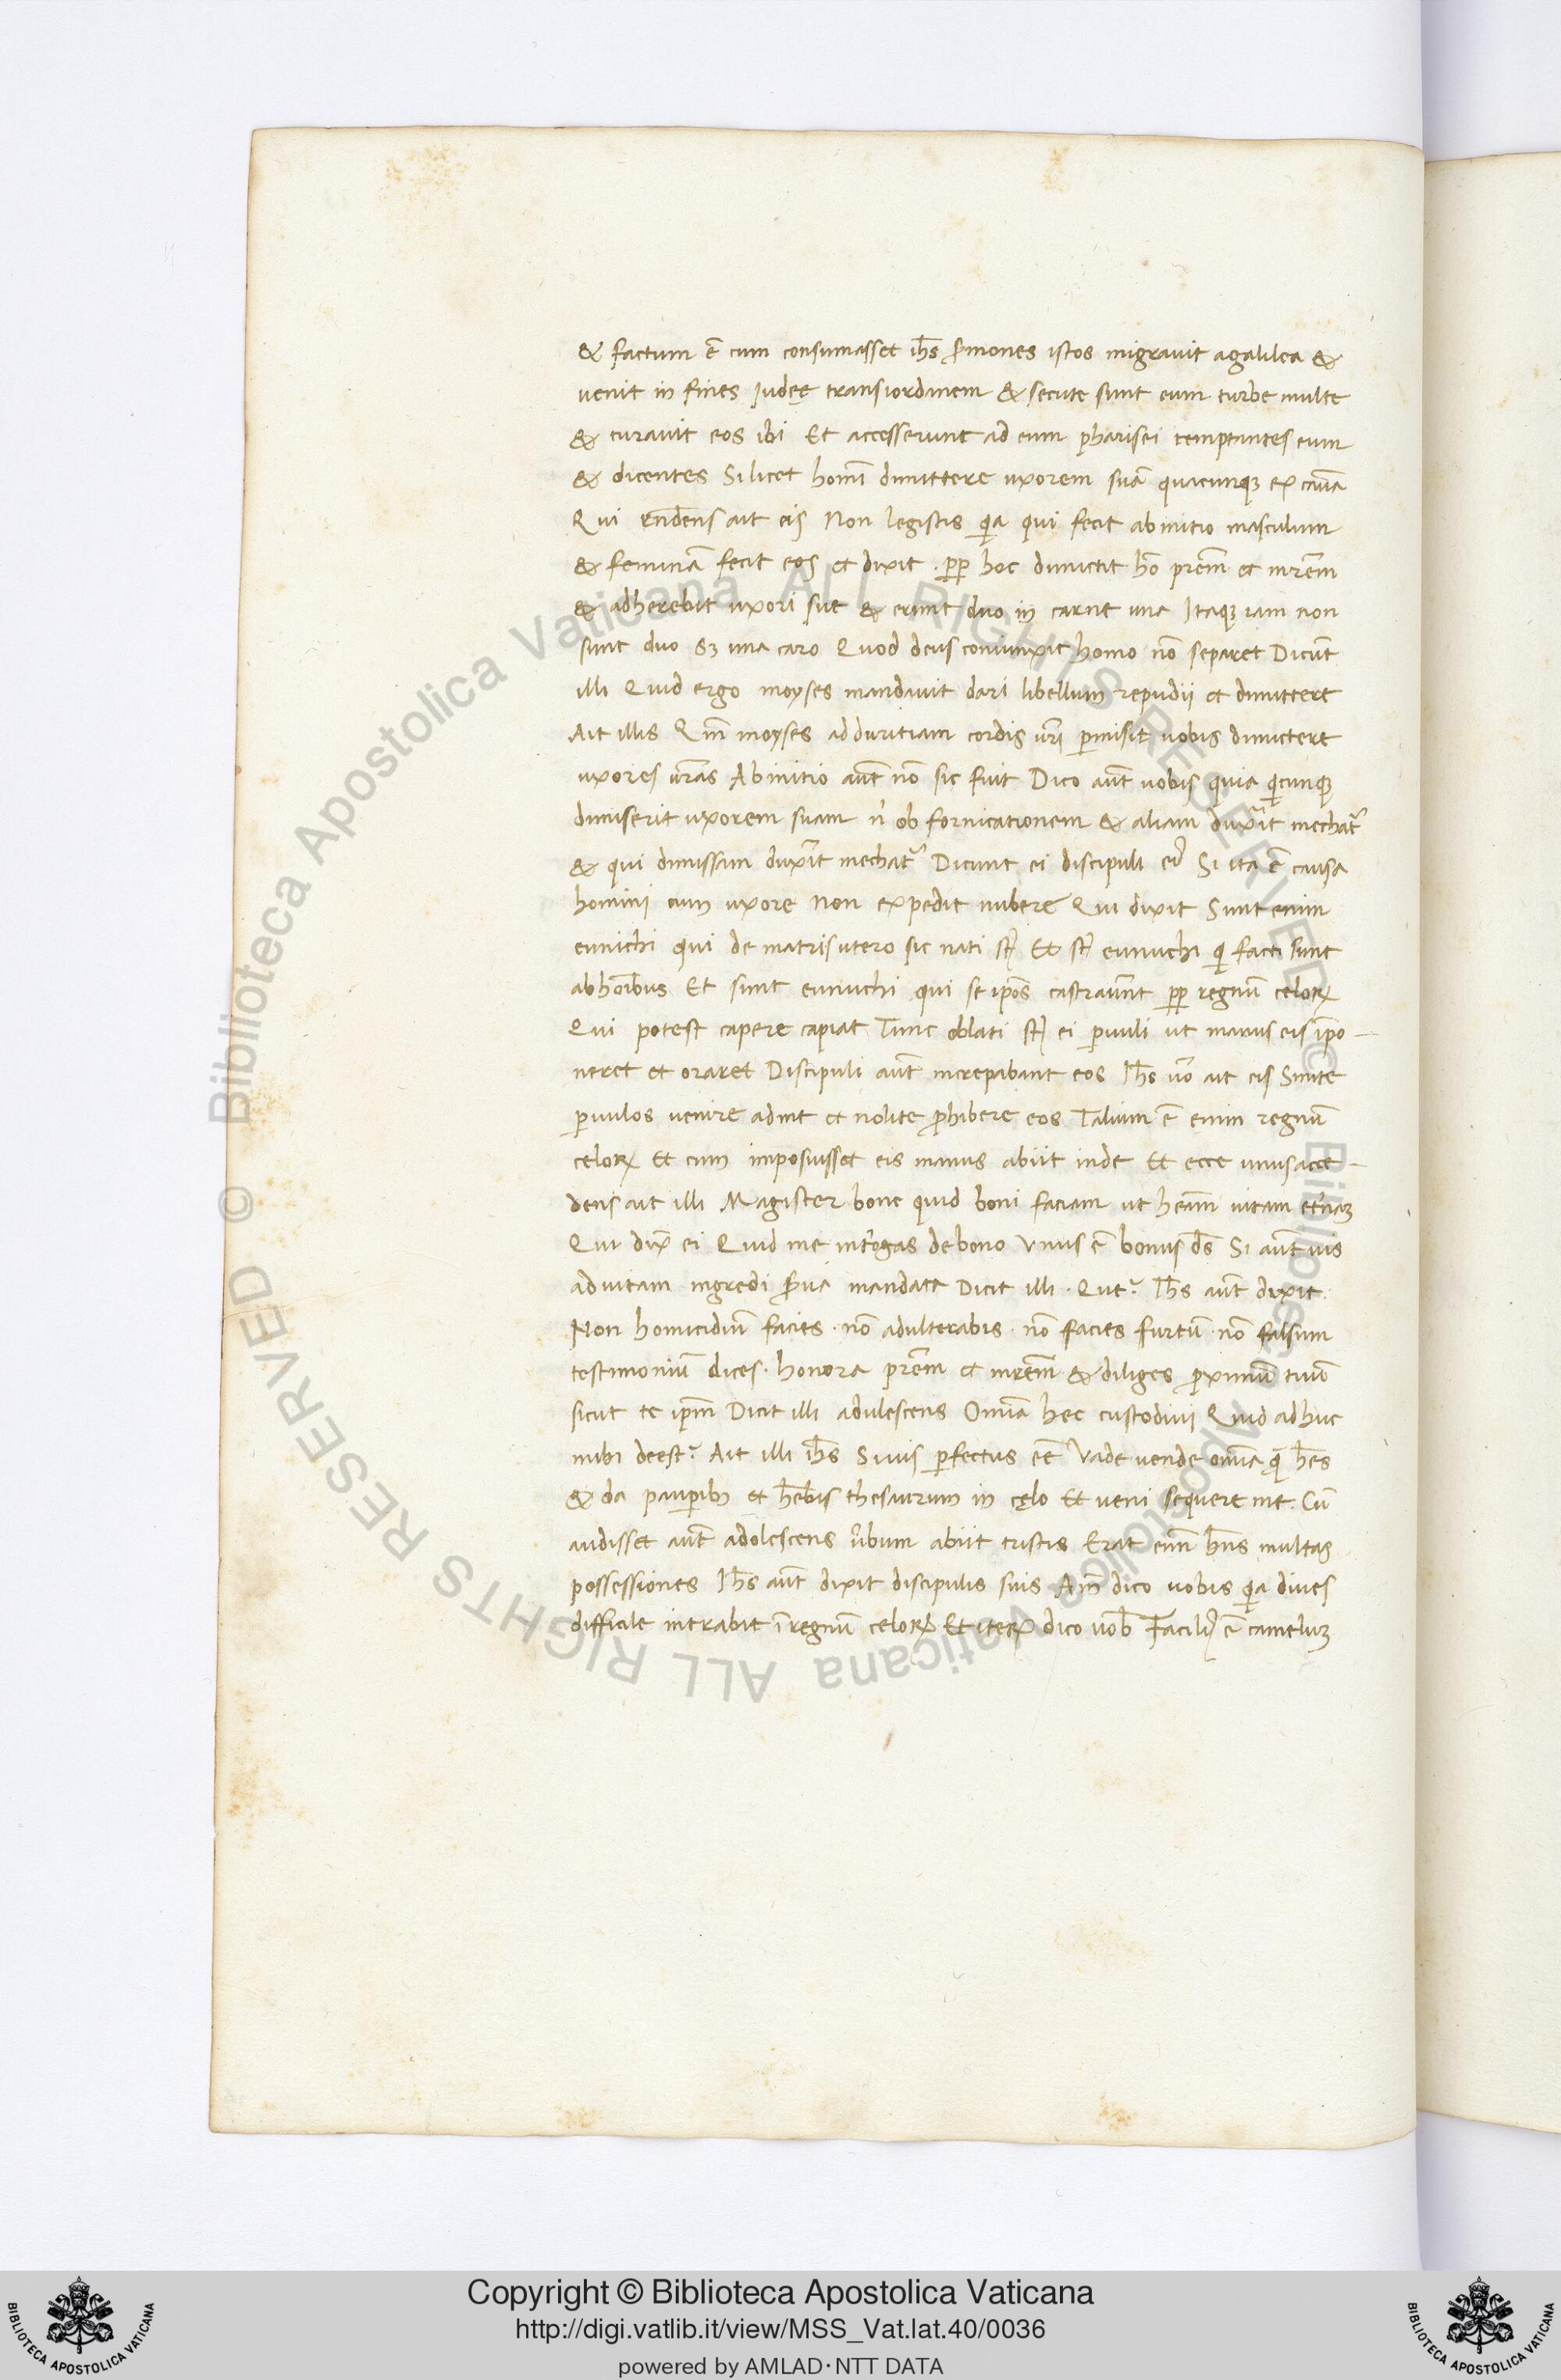 & factum ē cum consumasset ih̄s s̄mones istos migravit agalilea &
venit in fines Iudeę transiordanem & secute sunt eum turbe multe
& curavit eos ibi Et accesserunt ad eum pharisei temptantes eum
& dicentes Si licet homī dimittere uxorem suā quacunqꝫ ex cāusa
Qui rn̄dens ait eis Non legistis qͥa qui fecit abinitio masculum
& feminā fecit eos et dixit . ꝓp̄ hoc dimictit hō prēm et mrēm
& adherebit uxori sue & erunt duo in carne una Itaqꝫ iam non
sunt duo sꝫ una caro Quod deus coniunxit homo nō separet Dicūt
illi Quid ergo moyses mandavit dari libellum repudii et dimittere
Ait illis Qm̄ moyses ad duritiam cordis vrī ꝑmisit vobis dimictere
uxores vrās Abinitio aūt nō sic fuit Dico aūt vobis quia qͥcunqꝫ
dimiserit uxorem suam nͥ ob fornicationem & aliam duxͥit mechat᷑
& qui dimissam duxͥit mechat᷑ Dicunt ei discipuli eiꝰ Si ita ē causa
homini cum uxore non expedit nubere Qui dixit Sunt enim
eunichi qui de matris utero sic nati st̄ Et st̄ eunuchi qͥ facti sunt
abhoībus Et sunt eunuchi qui se ip̄os castraūnt ꝓp̄ regnū celoꝝ
Qui potest capere capiat Tunc oblati st̄ ei ꝑvuli ut manus eis īpo-
neret et oraret Discipuli aūt increpabant eos Ih̄s vō ait eis Sinite
ꝑvulos venire adme et nolite ꝓhibere eos Talium ē enim regnū
celoꝝ Et cum imposuisset eis manus abiit inde Et ecce unus acce-
dens ait illi Magister bone quid boni faciam ut hēam vitam et̄naꝫ
Qui dix̄ ei Quid me int̄rogas debono Unus ē bonus d̄s Si aūt vis
advitam ingredi s̄va mandata Dicit illi . Que? Ih̄s aūt dixit.
Non homicidiū facies . nō adulterabis . nō facies furtū . nō falsum
testimoniū dices . honora prēm et mrēm & diliges ꝓximū tuū
sicut te ip̄m Dicit illi adulescens Omīa hec custodivi Quid adhuc
mihi deest? Ait illi ih̄s Si vis ꝑfectus eē Vade vende omīa q̄ hēs
& da pauꝑibꝫ et hēbis thesaurum in cęlo Et veni sequere me. Cū
audisset aūt adolescens v̄bum abiit tristis Erat eni̅ hn̄s multas
possessiones Ih̄s aūt dixit discipulis suis Am̄ dico vobis qͥa dives
difficile intrabit ī regnū celoꝝ Et iteꝝ dico vob̄ Faciliꝰ ē cameluꝫ
Copyright © Biblioteca Apostolica Vaticana
http://digi.vatlib.it/view/MSS_Vat.lat.40/0036
powered by AMLAD·NTT DATA
BIBLIOTECA APOSTOLICA VATICANA
BIBLIOTECA APOSTOLICA VATICANA
© Biblioteca Apostolica Vaticana ALL RIGHTS RESERVED
© Biblioteca Apostolica Vaticana ALL RIGHTS RESERVED